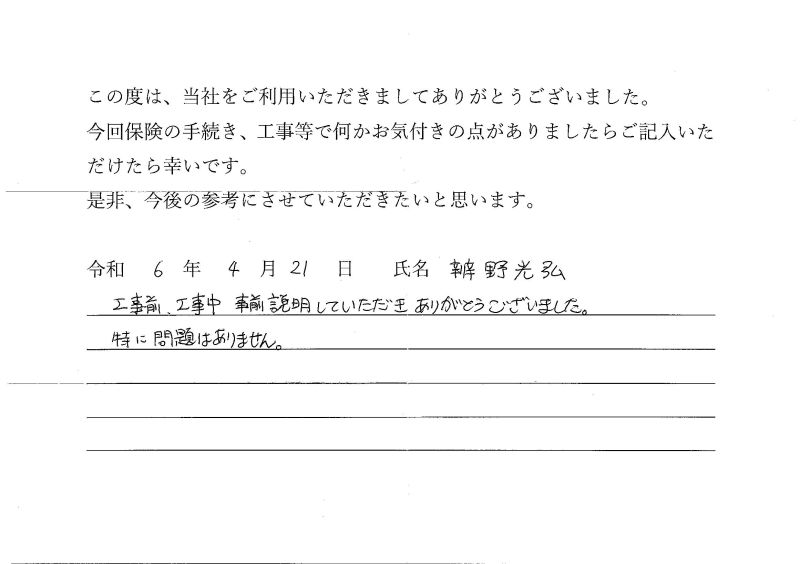 この度は、当社をご利用いただきましてありがとうございました。
今回保険の手続き、工事等で何かお気付きの点がありましたらご記入いた
だけたら幸いです。
是非、今後の参考にさせていただきたいと思います。
令和 6 年 4 月 21 日 氏名 野光弘
工事前、工事中 事前説明していただきありがとうございました。
特に問題はありません。